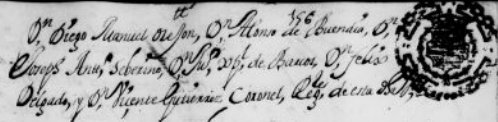 Dn Diego Manuel Messon, Dn Alfonso de Buendia, Dn
Joseph Antto Seberino, Dn Juo Xpl de Barios, Dn Felix
Delgado, y Dn Vicente Gutierrez, Coronel, Regres de esta